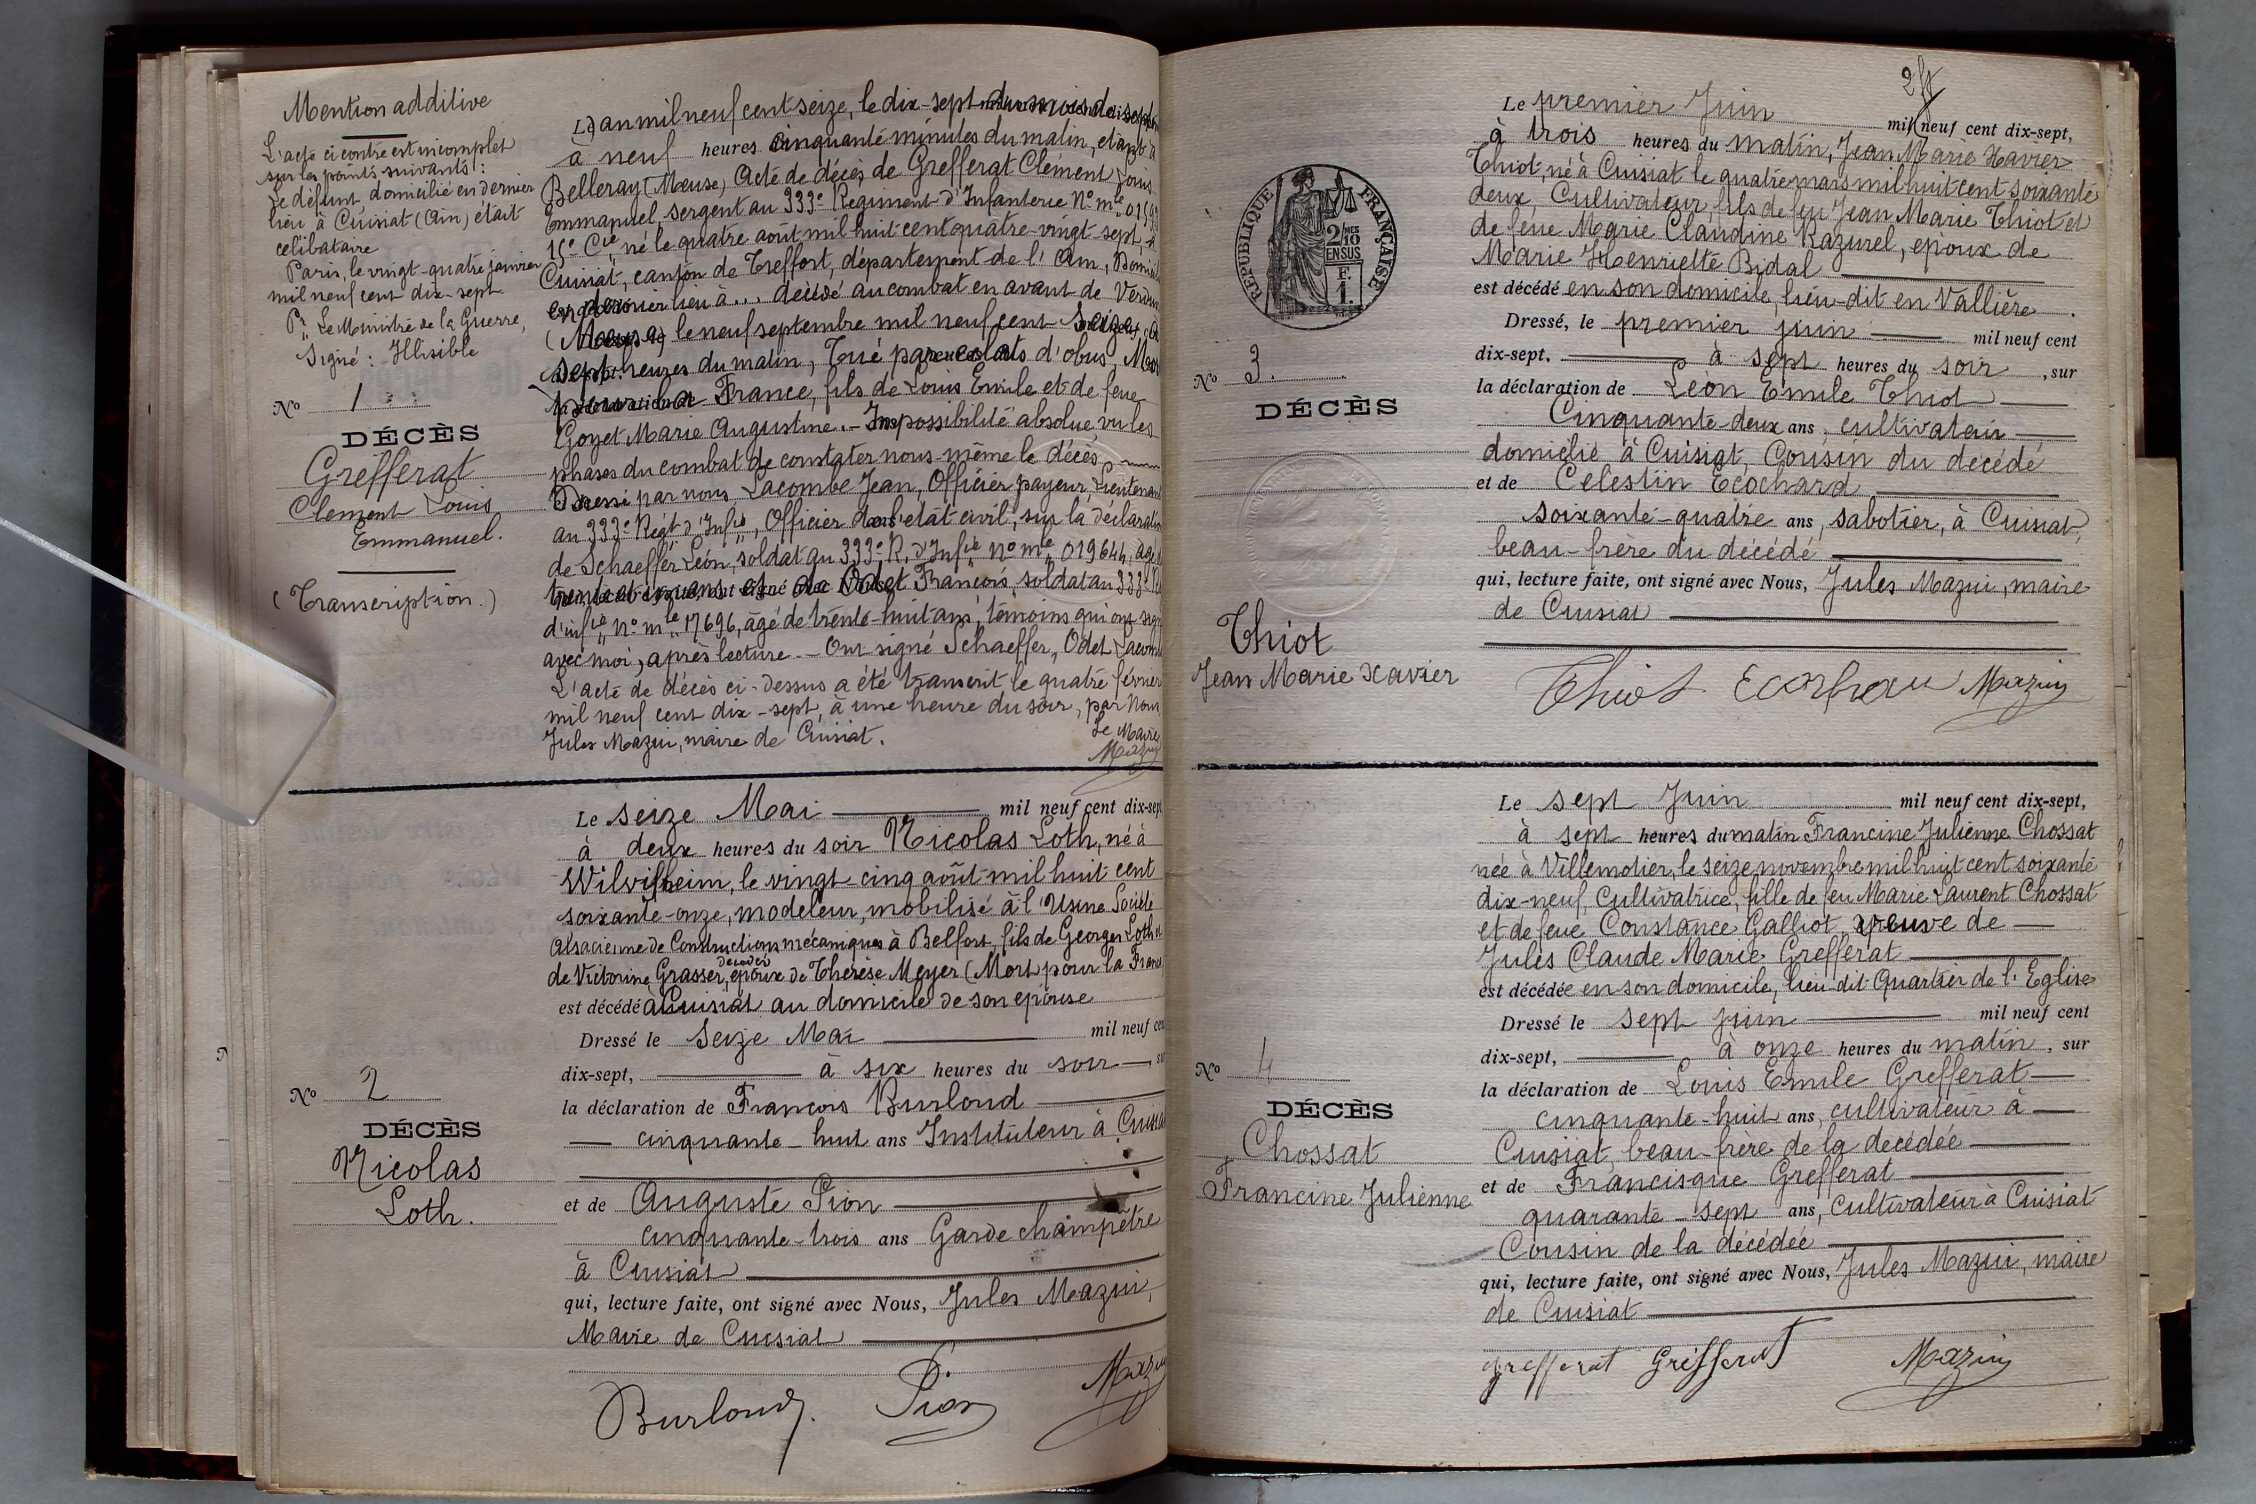 Mention additive
L'acte ci contre est incomplet
sur les points suivants :
Le défunt domicilié en dernier
lieu à Cuisiat (Ain) était
célibataire
Paris, le vingt-quatre janvier
mil neuf cent dix-sept
Pr Le Ministre de la Guerre,
Signé : Illisible
No 1
DÉCÈS
Grefferat
Clement Louis
Emmanuel.
(Transcription.)
L'an mil neuf cent seize, le dix-sept du mois de
à neuf heures cinquante minutes du matin, étant à
Belleray (Meuse) Acte de décès de Grefferat Clément Louis
Emmanuel sergent au 333e Régiment d'Infanterie No mle
15e Cie né le quatre août mil huit cent quatre-vingt sept à
Cuisiat, canton de Treffort, département de l'Ain,
en dernier lieu à... décédé au combat en avant de Verdun
(Meuse) le neuf septembre mil neuf cent seize, à
sept heures du matin, Tué par éclats d'obus, Mort
pour la France, fils de Louis Emile et de feue
Goyet Marie Augustine. - Impossibilité absolue vu les
phases du combat de constater nous-même le décès
Dressé par nous Lacombe Jean, Officier payeur, Lieutenant
au 333e Régt d'Infie, Officier de l'état civil, sur la déclaration
de Schaeffer Léon, soldat au 333e R. d'Infie No mle 019644, âgé
trente et ans et de Odet François, soldat au 333e
d'infie No mle 17696, âgé de trente-huit ans, témoins qui ont signé
avec moi, après lecture - Ont signé Schaeffer, Odet Lacombe
L'acte de décès ci-dessus a été transcrit le quatre février
mil neuf cent dix-sept, à une heure du soir, par Nous
Jules Mazui, maire de Cuisiat.
Le Maire
Mazuy
No 2
DÉCÈS
Nicolas
Loth.
Le seize Mai mil neuf cent dix-sept
à deux heures du soir Nicolas Loth, né à
Wilvisheim, le vingt-cinq août mil huit cent
soixante-onze, modeleur, mobilisé à l'Usine Société
Alsacienne de Constructions mécaniques à Belfort, fils de Georges Loth et
de Victorine Grasser, décédés époux de Thérèse Meyer (Mort pour la France
est décédé à Cuisiat au domicile de son épouse
Dressé le seize Mai mil neuf cent
dix-sept, à six heures du soir, sur
la déclaration de François Burloud
cinquante-huit ans Instituteur à Cuisiat
et de Auguste Pion
cinquante-trois ans Garde champêtre
à Cuisiat
qui, lecture faite, ont signé avec Nous, Jules Mazui,
Maire de Cuisiat
Burloud. Pion Mazuy
2
RÉPUBLIQUE FRANÇAISE
2/10 EN SUS
F. 1.
No 3.
DÉCÈS
Thiot
Jean Marie Xavier
Le premier Juin mil neuf cent dix-sept,
à trois heures du matin, Jean Marie Xavier
Thiot, né à Cuisiat le quatre mars mil huit cent soixante
deux, Cultivateur, fils de feu Jean Marie Thiot et
de feue Marie Claudine Razurel, époux de
Marie Henriette Bidal
est décédé en son domicile, lieu-dit en Vallière.
Dressé, le premier juin mil neuf cent
dix-sept, à sept heures du soir, sur
la déclaration de Léon Emile Thiot
Cinquante-deux ans, cultivateur
domicilié à Cuisiat, Cousin du décédé
et de Célestin Ecochard
soixante-quatre ans, sabotier, à Cuisiat,
beau-frère du décédé
qui, lecture faite, ont signé avec Nous, Jules Mazui, maire
de Cuisiat
Thiot Mazuy
No 4
DÉCÈS
Chossat
Francine Julienne
Le sept Juin mil neuf cent dix-sept,
à sept heures du matin Francine Julienne Chossat
née à Villemotier, le seize novembre mil huit cent soixante
dix-neuf, Cultivatrice, fille de feu Marie Laurent Chossat
et de feue Constance Galliot, veuve de
Jules Claude Marie Grefferat
est décédée en son domicile, lieu dit Quartier de l'Eglise
Dressé le sept juin mil neuf cent
dix-sept, à onze heures du matin, sur
la déclaration de Louis Emile Grefferat
cinquante-huit ans, cultivateur à
Cuisiat, beau-frère de la décédée
et de Francisque Grefferat
quarante-sept ans, Cultivateur à Cuisiat
Cousin de la décédée
qui, lecture faite, ont signé avec Nous, Jules Mazui, maire
de Cuisiat
grefferat Grefferat Mazuy